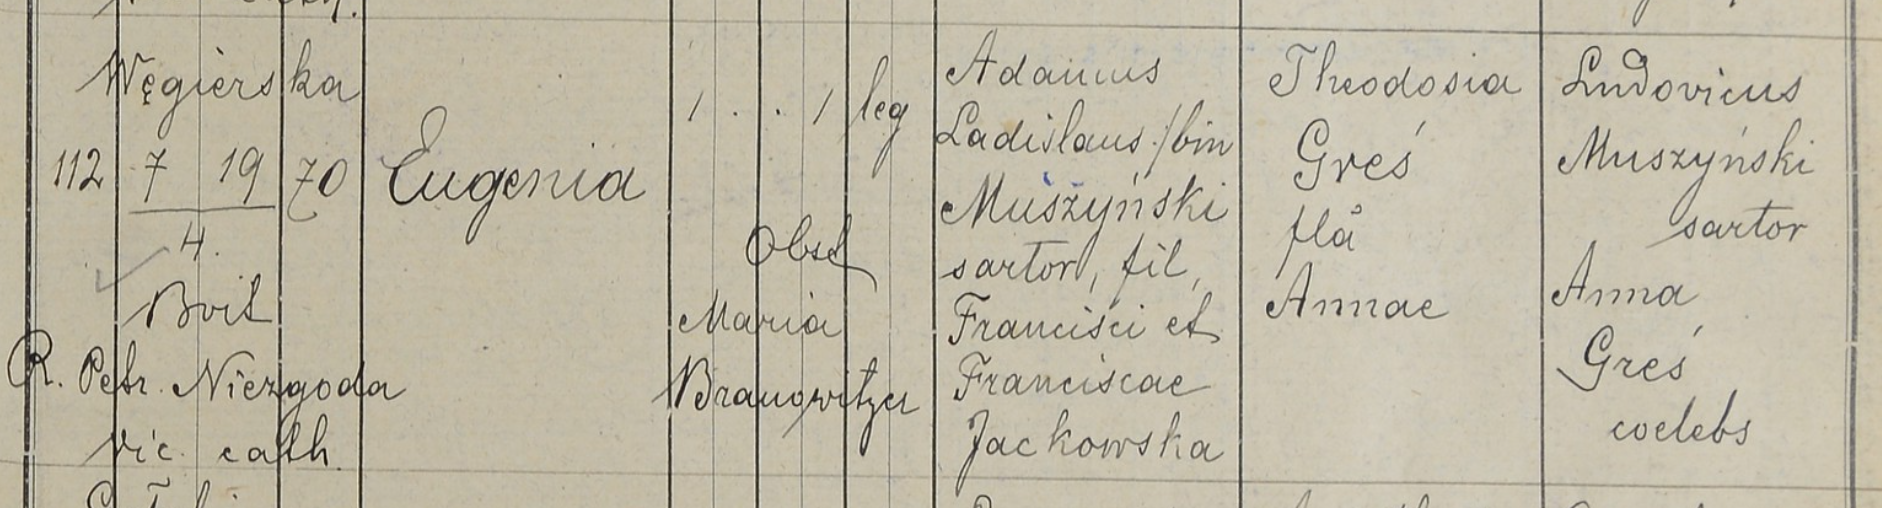 Węgierska
112 7 19 70 Eugenia
4.
Bvit
R. Petr. Niezgoda
vic. cath.
1 . . 1 leg
Obst
Maria
Adamus
Ladislaus /bin
Muszyński
sartor, fil,
Francisci et
Franciscae
Jackowska
Theodosia
Greś
fla
Annae
Ludovicus
Muszyński
sartor
Anna
Greś
coelebs